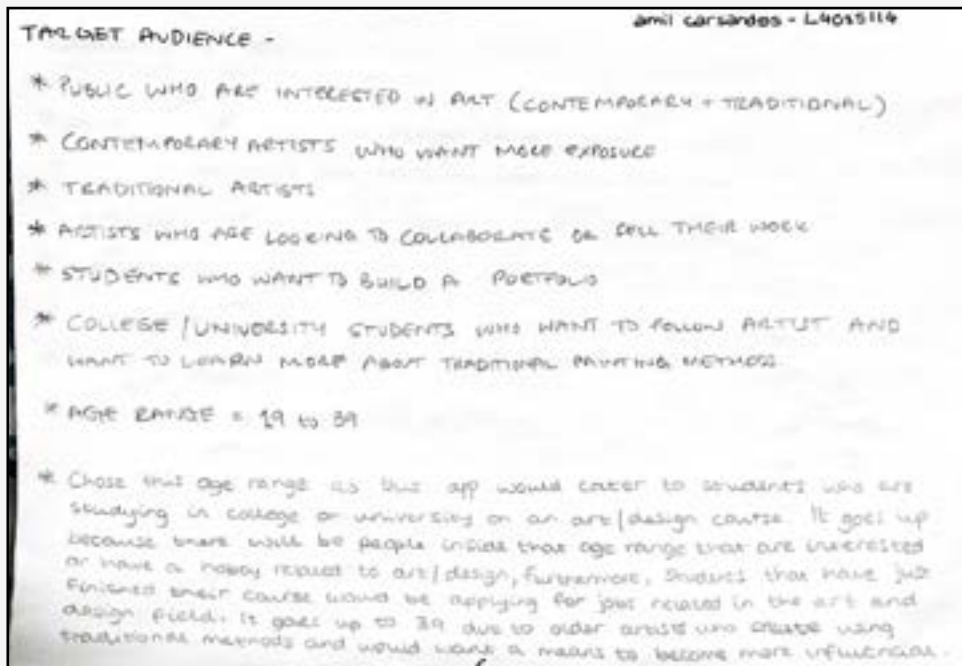 amil carsandos - L4015114
TARGET AUDIENCE -
* PUBLIC WHO ARE INTERESTED IN ART (CONTEMPORARY + TRADITIONAL)
* CONTEMPORARY ARTISTS WHO WANT MORE EXPOSURE
* TRADITIONAL ARTISTS
* ARTISTS WHO ARE LOOKING TO COLLABORATE OR SELL THEIR WORK
* STUDENTS WHO WANT TO BUILD A PORTFOLIO
* COLLEGE / UNIVERSITY STUDENTS WHO WANT TO FOLLOW ARTIST AND
WANT TO LEARN MORE ABOUT TRADITIONAL PAINTING METHODS.
* AGE RANGE = 19 to 39
* Chose this age range as this app would cater to students who are
studying in college or university on an art/design course. It goes up
because there will be people inside that age range that are interested
or have a hobby related to art/design, furthermore, students that have just
finished their course would be applying for jobs related in the art and
design field. It goes up to 39 due to older artists who create using
traditional methods and would want a means to become more influencial.